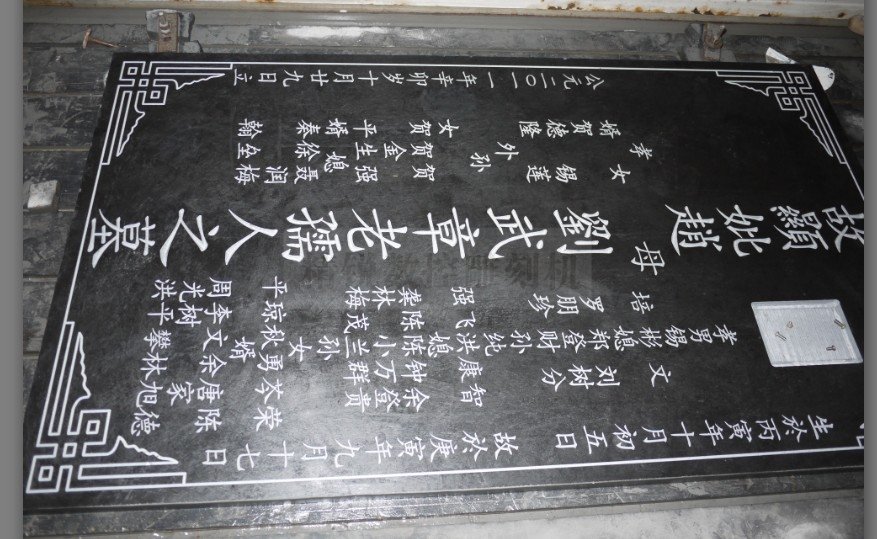 生於丙寅年十月初五日 故於庚寅年九月十七日
文 刘树分 智康 钟万群 余登贵 岑荣 余唐家林 陈旭德
孝男 锡彬 媳 郑登财 孙 纯 飞洪 媳 陈陈茂小兰 孙女 琼秋勇 婿 李树文平攀
培 罗朋珍 强 龚林梅 平 周光洪
故顯妣趙母劉武章老孺人之墓
孝女 锡莲 外孙 贺强 媳 聂润梅
贺金生 徐垒
婿 贺德隆 女 贺平 婿 秦翰
公元二〇一一年辛卯岁十月廿九日立